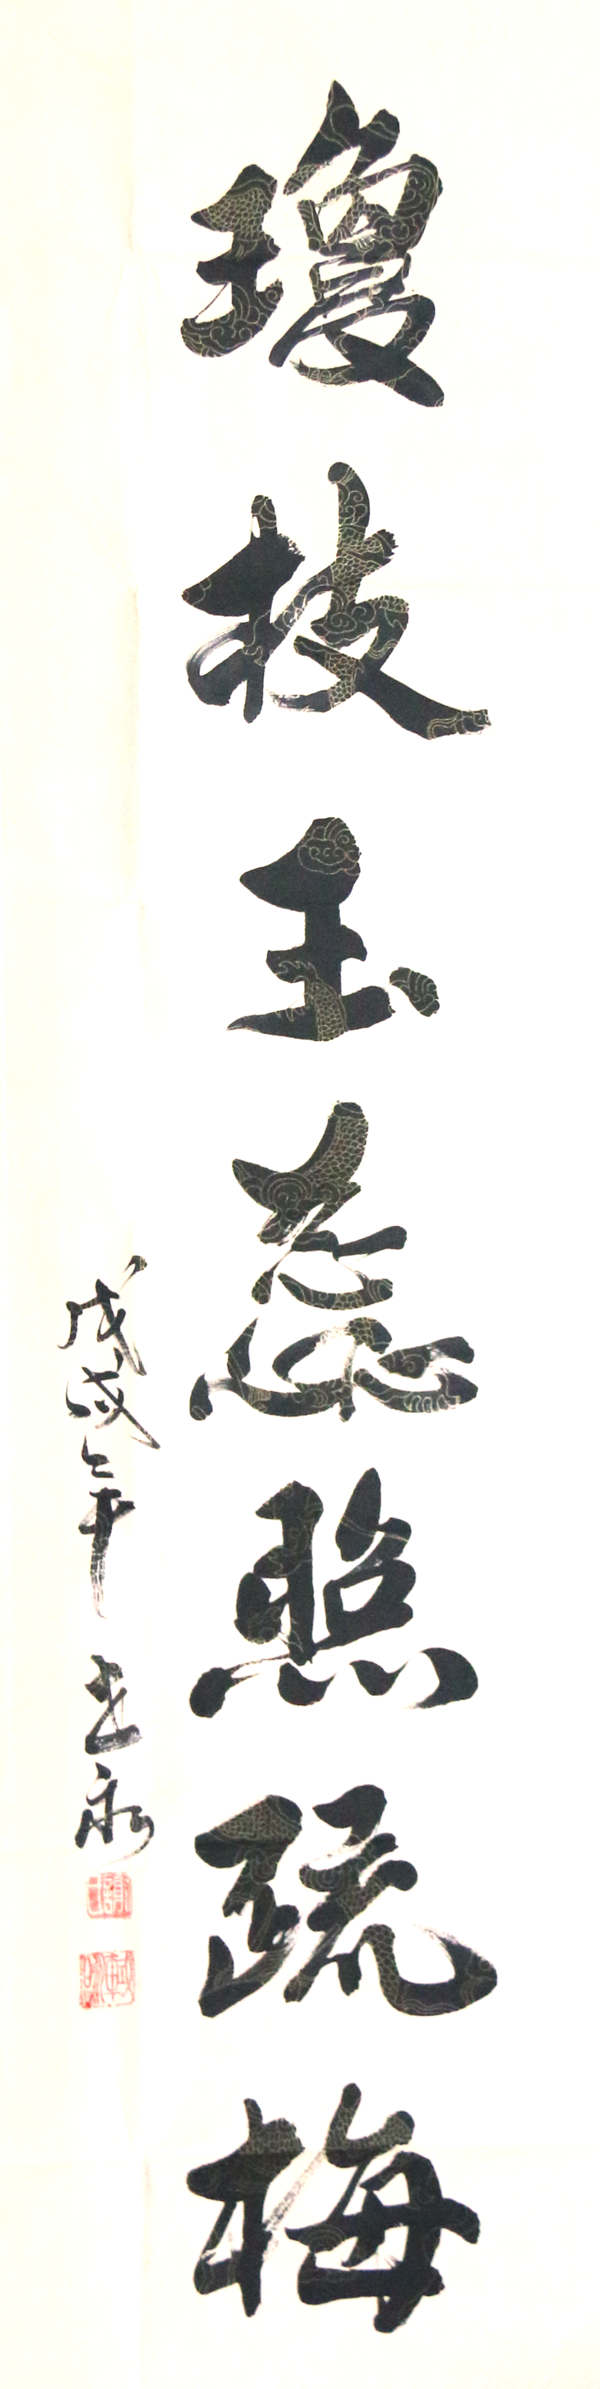 瓊枝玉蕊照疏梅
戊戌年